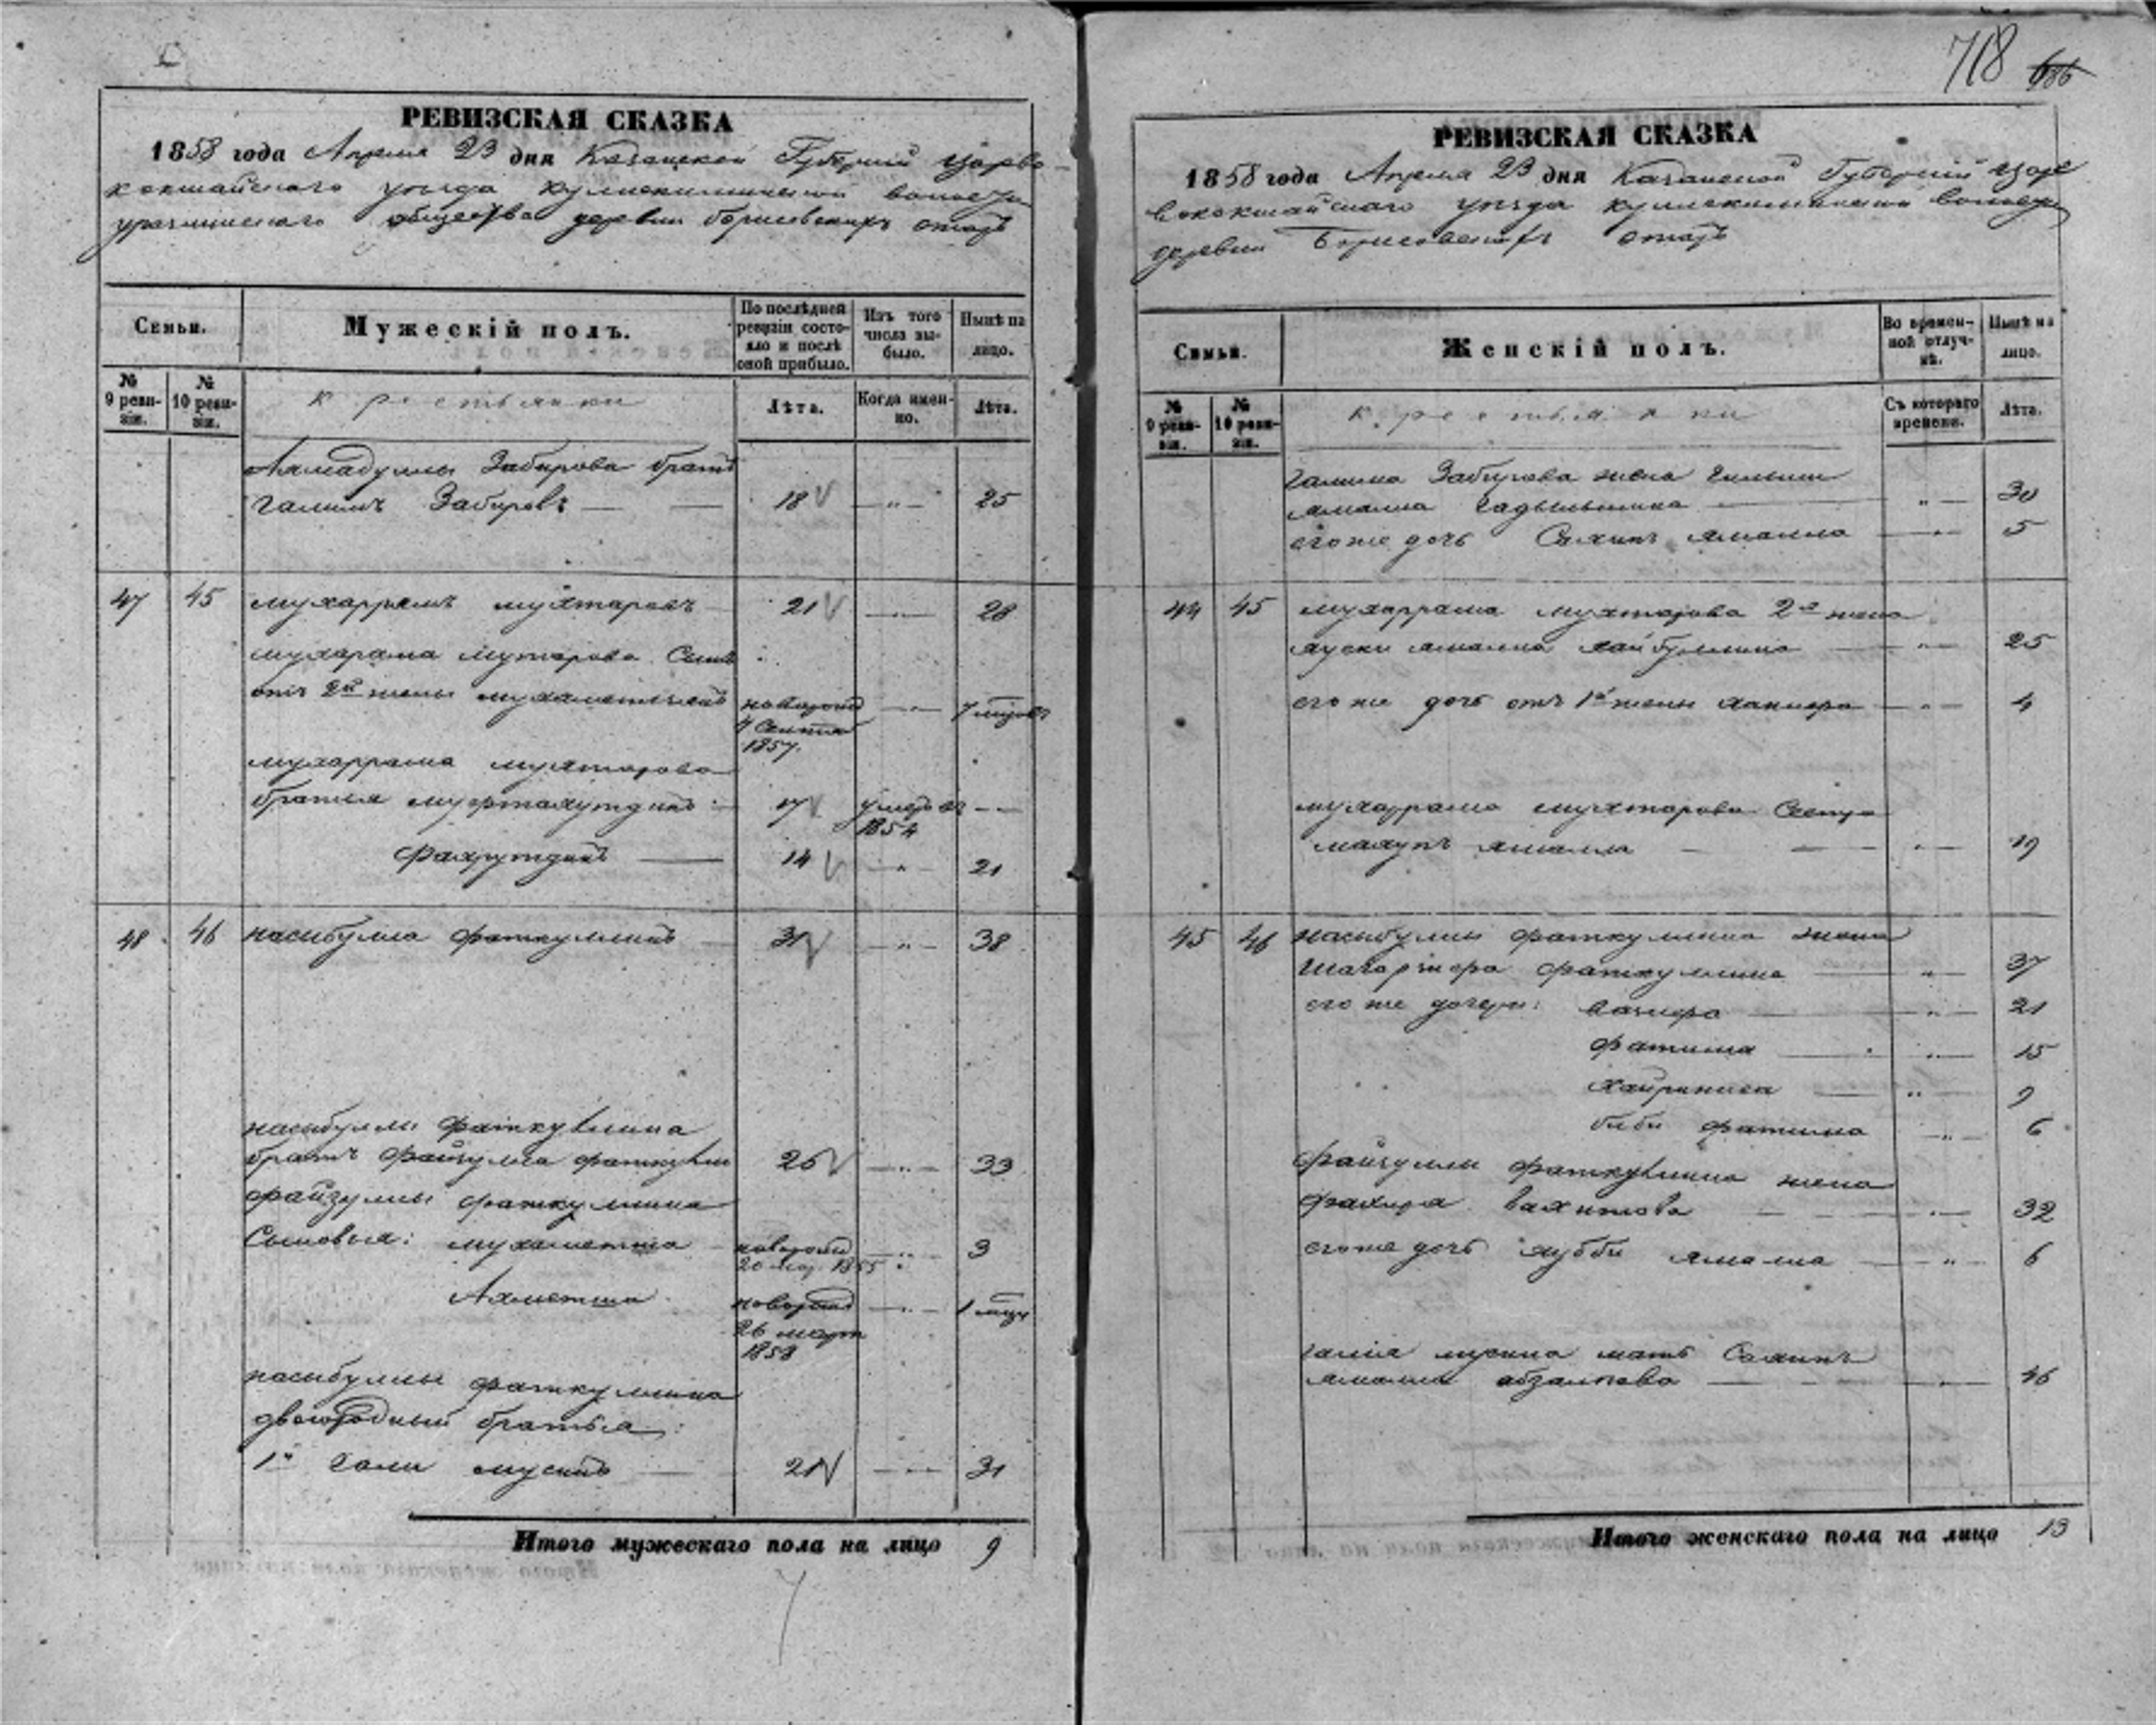 РЕВИЗСКАЯ СКАЗКА
1858 года Апреля 23 дня Казанской Губерній Царево
кокшайскаго уезда волости
общества деревни Борисовскихъ отаръ
Семьи.
Мужескій полъ.
По послѣдней ревизіи состояло и послѣ оной прибыло.
Изъ того числа выбыло.
Нынѣ на лицо.
№ 9 ревизіи.
№ 10 ревизіи.
крестьяне
Лѣта.
Когда именно.
Лѣта.
Ахмадуллы Забирова братъ
Галимъ Забировъ — — 18 — „ — 25
47 45 мухаррямъ мухтаровъ 21 — „ — 28
мухарама мутарова Сынъ
отъ 2й жены новорожд — „ — 7 мѣцовъ
4 Сентяб
1857.
мухаррама мухтарова
братья 17 умеръ въ — —
1854
Фахрутдинъ — 14 — „ — 21
48 46 насибулла фаткуллинъ — 31 — „ — 38
насибуллы фаткуллина
братъ Файзулла фаткулли 26 — „ — 33
файзуллы фаткуллина
Сыновья: мухаметша новорожд — „ — 3
20 мар. 1855
Ахметша новорожд — „ — 1 мцъ
26 март
1858
насибуллы фаткуллина
двоюродный братья:
1й Гали мусинъ — 21 — „ — 31
Итого мужескаго пола на лицо 9
718 686
РЕВИЗСКАЯ СКАЗКА
1858 года Апреля 23 дня Казанской Губерній Царе
вококшайскаго уезда волости
деревни Борисовскихъ отаръ
Семьи.
Женскій полъ.
Во временной отлучкѣ.
Нынѣ на лицо.
№ 9 ревизіи.
№ 10 ревизіи.
крестьянки
Съ котораго времени.
Лѣта.
Галима Забирова жена
ямалла — „ — 30
его же дочь ямалла — „ — 5
44 45 мухаррама мухтарова 2я жена
ямалла хайбуллина — „ — 25
его же дочь отъ 1й жены — „ — 4
мухаррама мухтарова Сестра
ямалла — — „ — 19
45 46 насибуллы фаткуллина жена
фаткуллина — „ — 37
его же дочери: вазира — „ — 21
фатима — „ — 15
хайриниса — „ — 9
биби фатима — „ — 6
файзуллы фаткуллина жена
вахитова — — „ — 32
его же дочь ямалла — „ — 6
Галія мусина мать
ямалла — — „ — 46
Итого женскаго пола на лицо 13